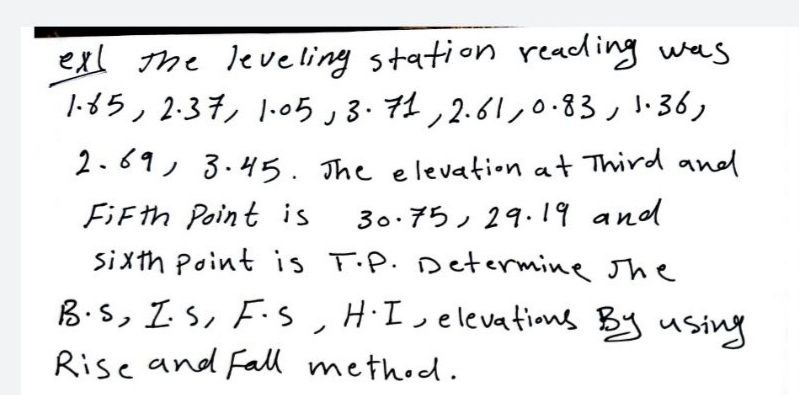 ex1 The leveling station reading was
1.65, 2.37, 1.05, 3.71, 2.61, 0.83, 1.36,
2.69, 3.45. The elevation at Third and
FiFth Point is 30.75, 29.19 and
sixth point is T.P. Determine The
B.S, I.S, F.S, H.I, elevations By using
Rise and Fall method.